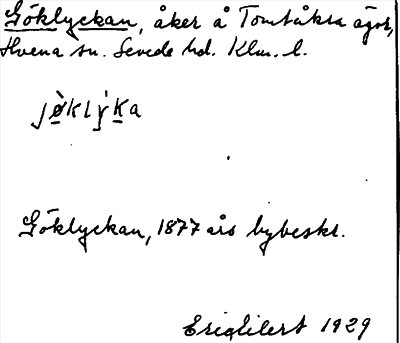 Göklyckan, åker å Tomtåkra ägor,
Hvena sn. Sevede hd. Klm. l.
jø̀klýka
Göklyckan, 1877 års bybeskr.
Eric Eilert 1929